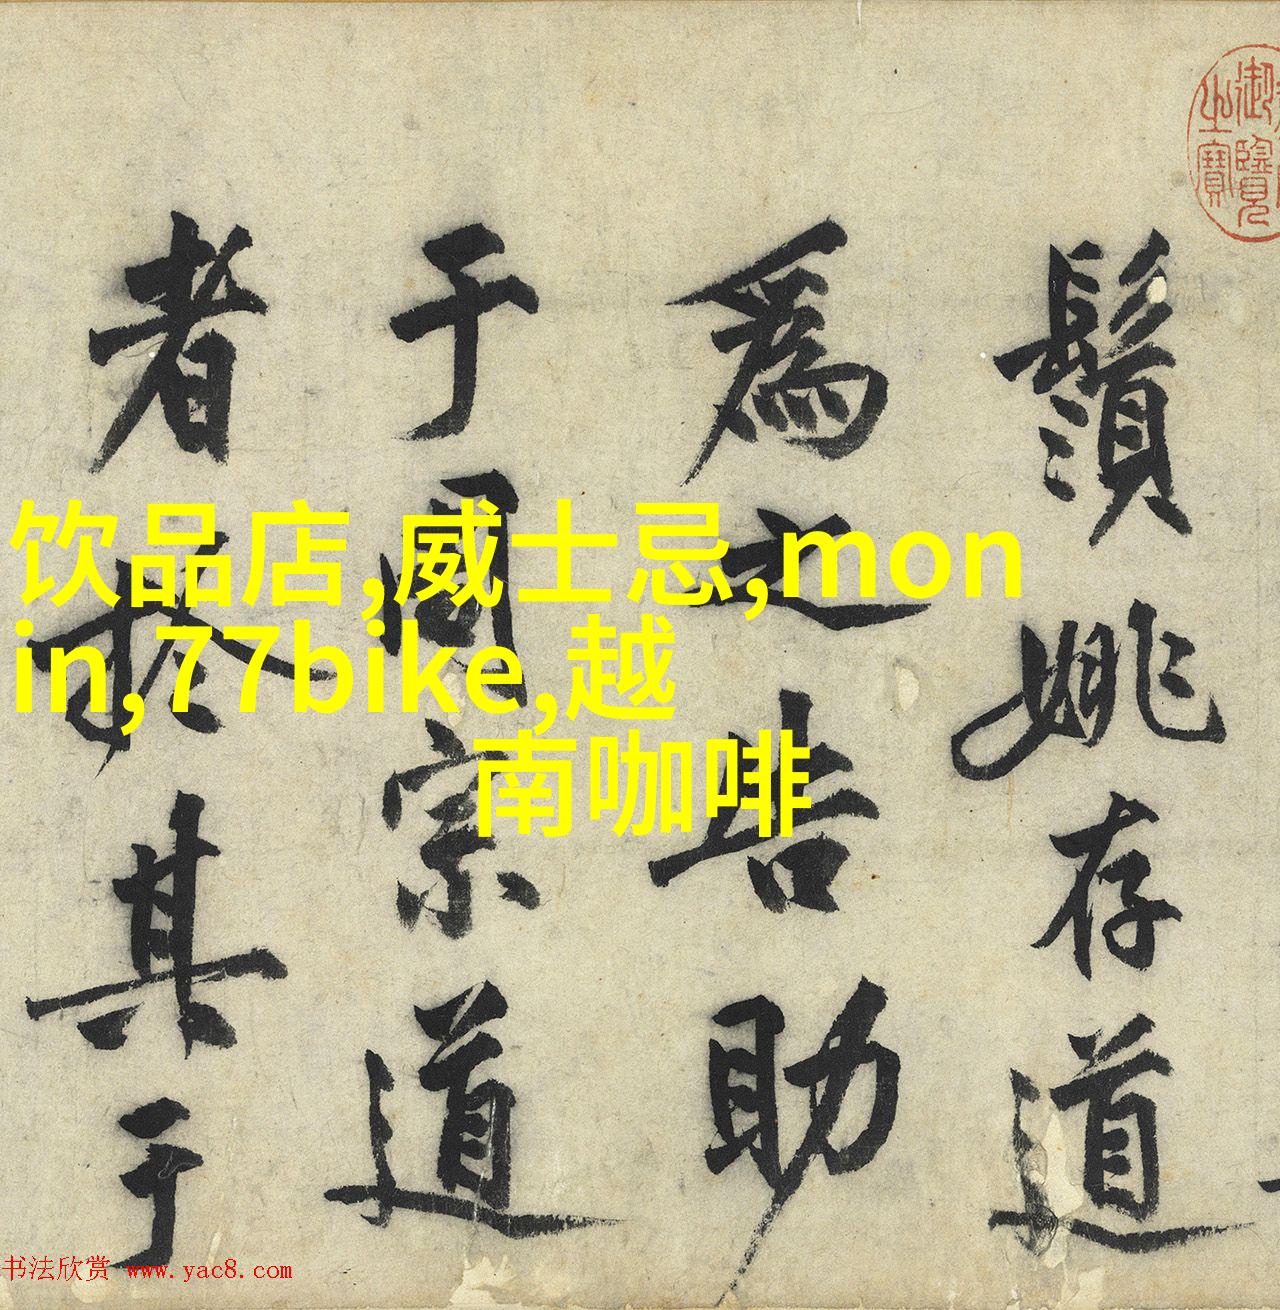 鬚姚存道
為之告助
于同宗道
者於其于
御覽
之寶
饮品店,威士忌,mon
in,77bike,越
南咖啡
书法欣赏 www.yac8.com